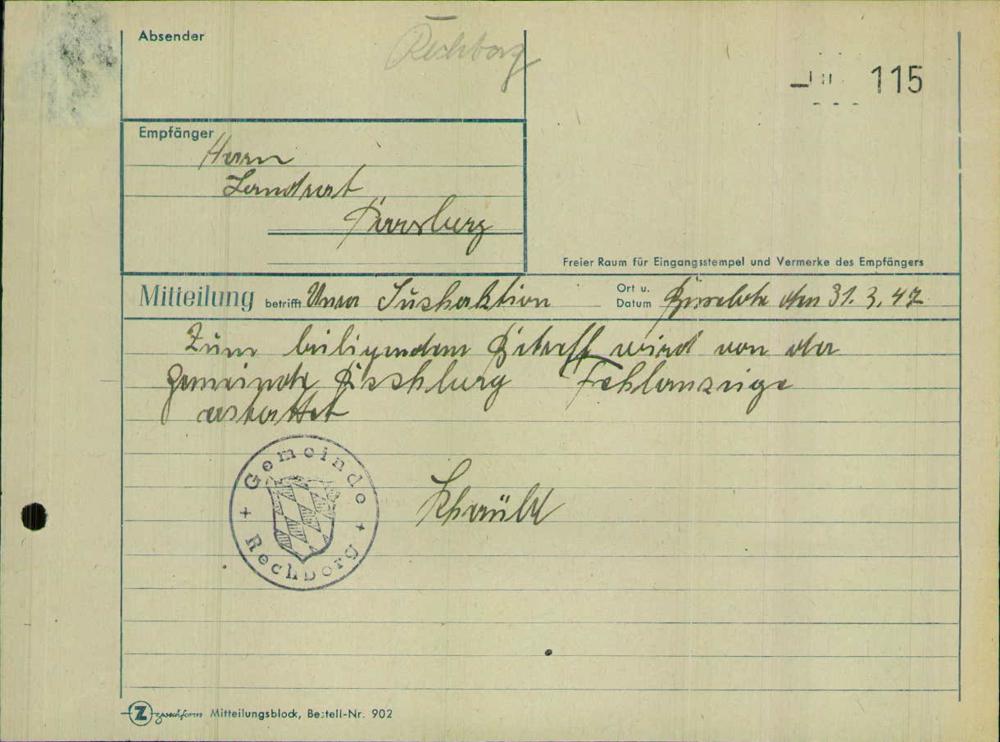 Absender
Rechberg
115
Empfänger
Herrn
Landrat
Parsberg
Freier Raum für Eingangsstempel und Vermerke des Empfängers
Mitteilung betrifft Unra Suchaktion
Ort u. Datum den 31.3.47
Zum beiligendem Betreff wird von der
Gemeinde Fehlanzeige
erstattet
Gemeinde Rechberg
Z zweckform Mitteilungsblock, Bestell-Nr. 902